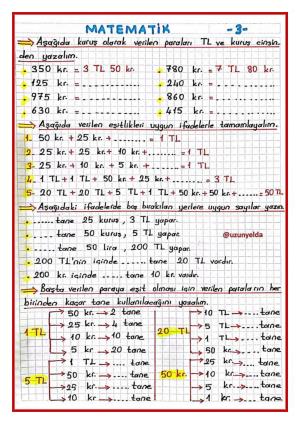 MATEMATİK -3-
Aşağıda kuruş olarak verilen paraları TL ve kuruş cinsin
den yazalım.
350 kr. = 3 TL 50 kr. 780 kr. = 7 TL 80 kr.
125 kr. = .......... 240 kr. = ..........
975 kr. = .......... 860 kr. = ..........
630 kr. = .......... 415 kr. = ..........
Aşağıda verilen eşitlikleri uygun ifadelerle tamamlayalım.
1. 50 kr. + 25 kr. + .......... = 1 TL
2. 25 kr. + 25 kr. + 10 kr. + .......... = 1 TL
3. 25 kr. + 10 kr. + 5 kr. + .......... = 1 TL
4. 1 TL + 1 TL + 50 kr. + 25 kr. + .......... = 3 TL
5- 20 TL + 20 TL + 5 TL + 1 TL + 50 kr. + 50 kr. + .......... = 50 TL
Aşağıdaki ifadelerde boş bırakılan yerlere uygun sayılar yazın.
...... tane 25 kuruş, 3 TL yapar.
...... tane 50 kuruş, 5 TL yapar. @uzunyelda
...... tane 50 lira, 200 TL yapar.
200 TL'nin içinde ...... tane 20 TL vardır.
200 kr. içinde ...... tane 10 kr. vardır.
Başta verilen paraya eşit olması için verilen paraların her
birinden kaçar tane kullanılacağını yazalım.
1 TL
50 kr. → 2 tane
25 kr. → 4 tane
10 kr. → 10 tane
5 kr. → 20 tane
20 TL
10 TL → ...... tane
5 TL → ...... tane
1 TL → ...... tane
50 kr. → ...... tane
5 TL
1 TL → ...... tane
50 kr. → ...... tane
25 kr. → ...... tane
10 kr. → ...... tane
50 kr.
25 kr. → ...... tane
10 kr. → ...... tane
5 kr. → ...... tane
1 kr. → ...... tane